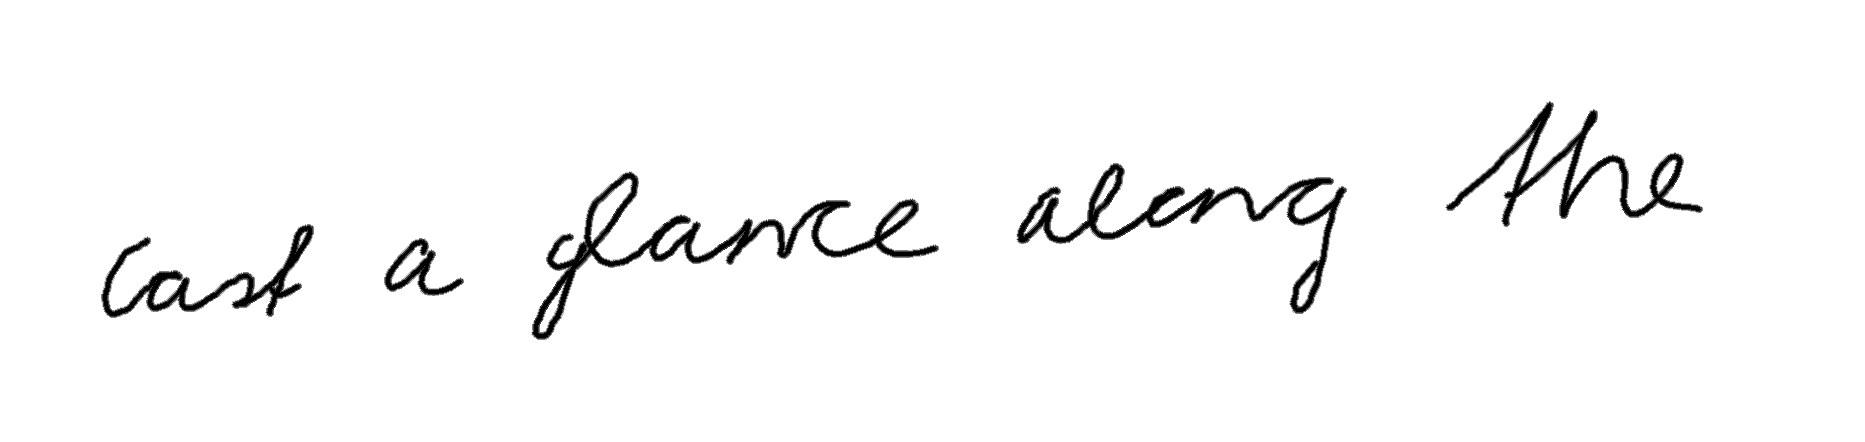 cast a glance along the